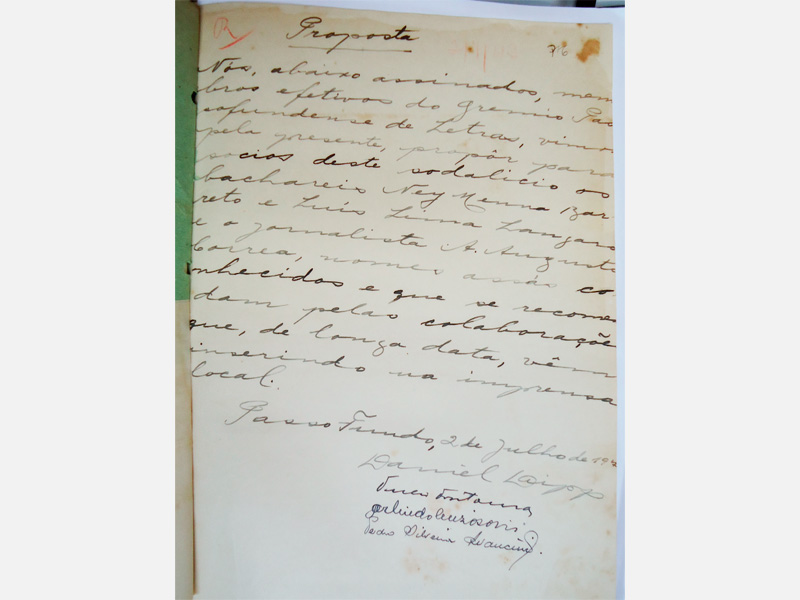 R
Proposta
76
Nós, abaixo assinados, mem
bros efetivos do Gremio Pas
sofundense de Letras, vimos
pela presente, propôr para
socios deste sodalicio os
bachareis Ney Menna Bar
reto e Luís Lima Langaro
e o jornalista A. Augusto
Correa, nomes assás co
nhecidos e que se recomen
dam pelas colaboraçõe
que, de longa data, vêm
inserindo na imprensa
local.
Passo Fundo, 2 de Julho de 19
Daniel Dipp
Fontana
Pedro Silveira Avancini